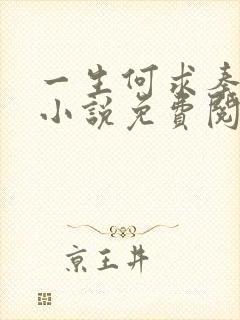 一生何求泰
小說免費閱
京王井